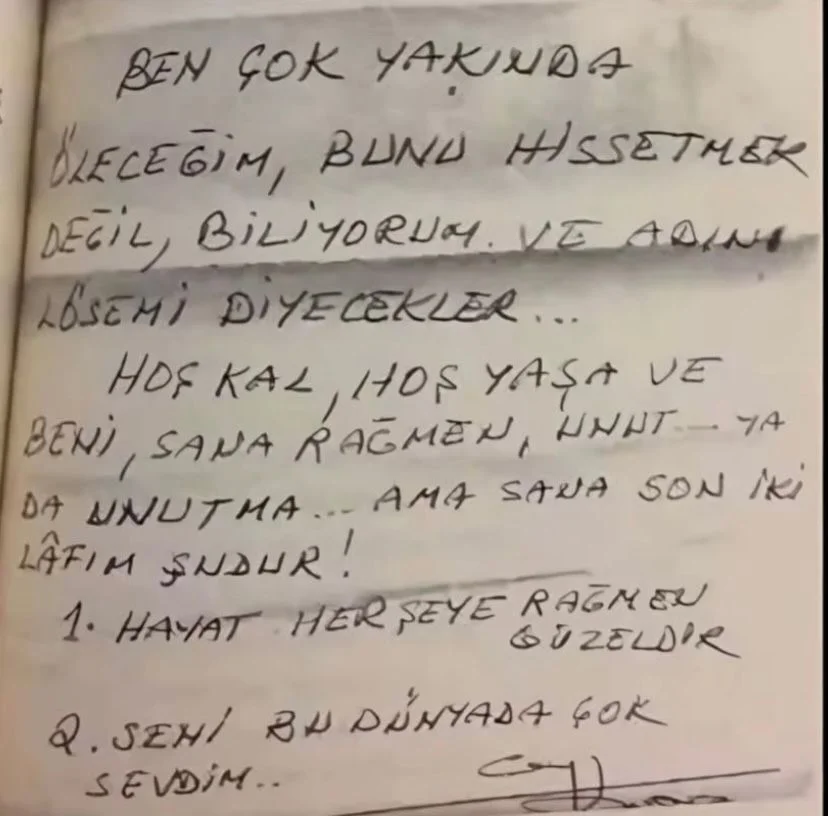 BEN ÇOK YAKINDA
ÖLECEĞİM, BUNU HİSSETMEK
DEĞİL, BİLİYORUM. VE ADINI
LÖSEMİ DİYECEKLER...
HOŞ KAL, HOŞ YAŞA VE
BENİ, SANA RAĞMEN, UNUT... YA
DA UNUTMA... AMA SANA SON İKİ
LÂFIM ŞUDUR!
1. HAYAT HERŞEYE RAĞMEN
GÜZELDİR
2. SENİ BU DÜNYADA ÇOK
SEVDİM..